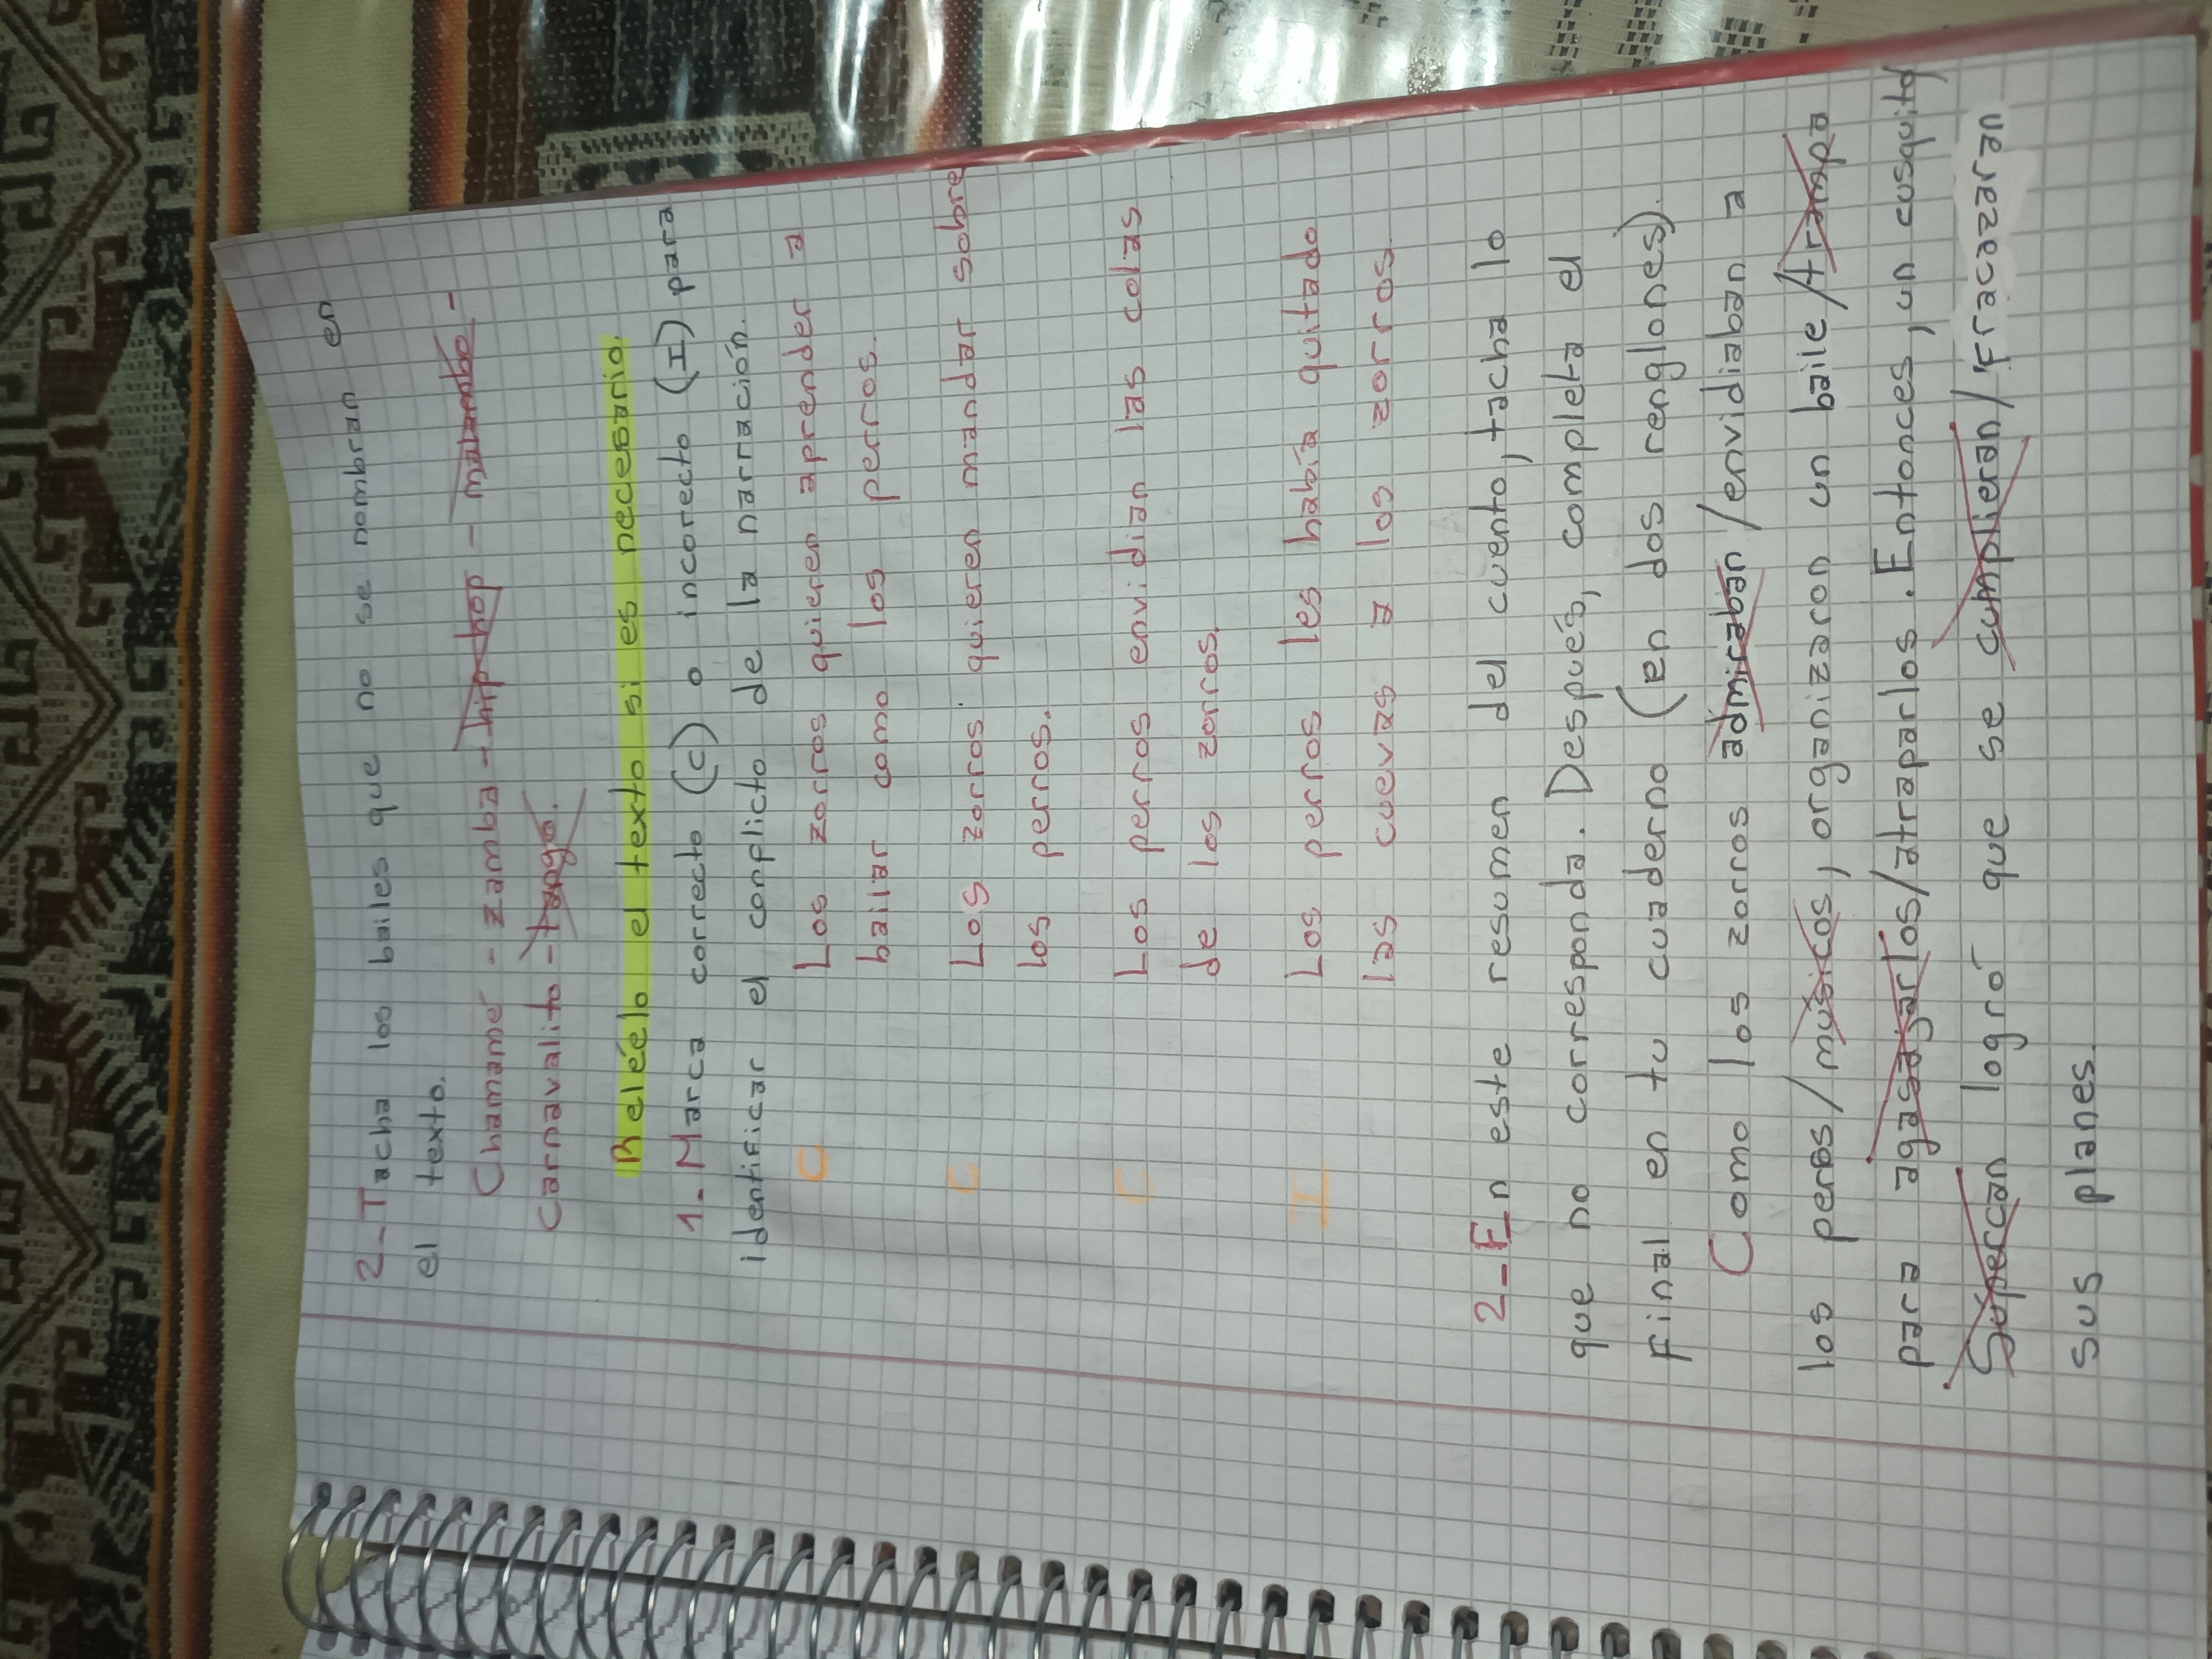 2-Tacha los bailes que no se nombran en
el texto.
Chamamé - zamba - hip-hop - malambo -
Carnavalito - tango.
Reléelo el texto si es necesario.
1-Marca correcto (C) o incorecto (I) para
identificar el conplicto de la narración.
C Los zorros quieren aprender a
bailar como los perros.
C Los zorros quieren mandar sobre
los perros.
C Los perros envidian las colas
de los zorros.
I Los perros les había quitado
las cuevas a los zorros.
2-En este resumen del cuento, tacha lo
que no corresponda. Después, completa el
final en tu cuaderno (en dos renglones).
Como los zorros admiraban/envidiaban a
los peros/músicos, organizaron un baile/trampa
para agasajarlos/atraparlos. Entonces, un cusquito/
Supercan logró que se cumplieran/fracazaran
sus planes.